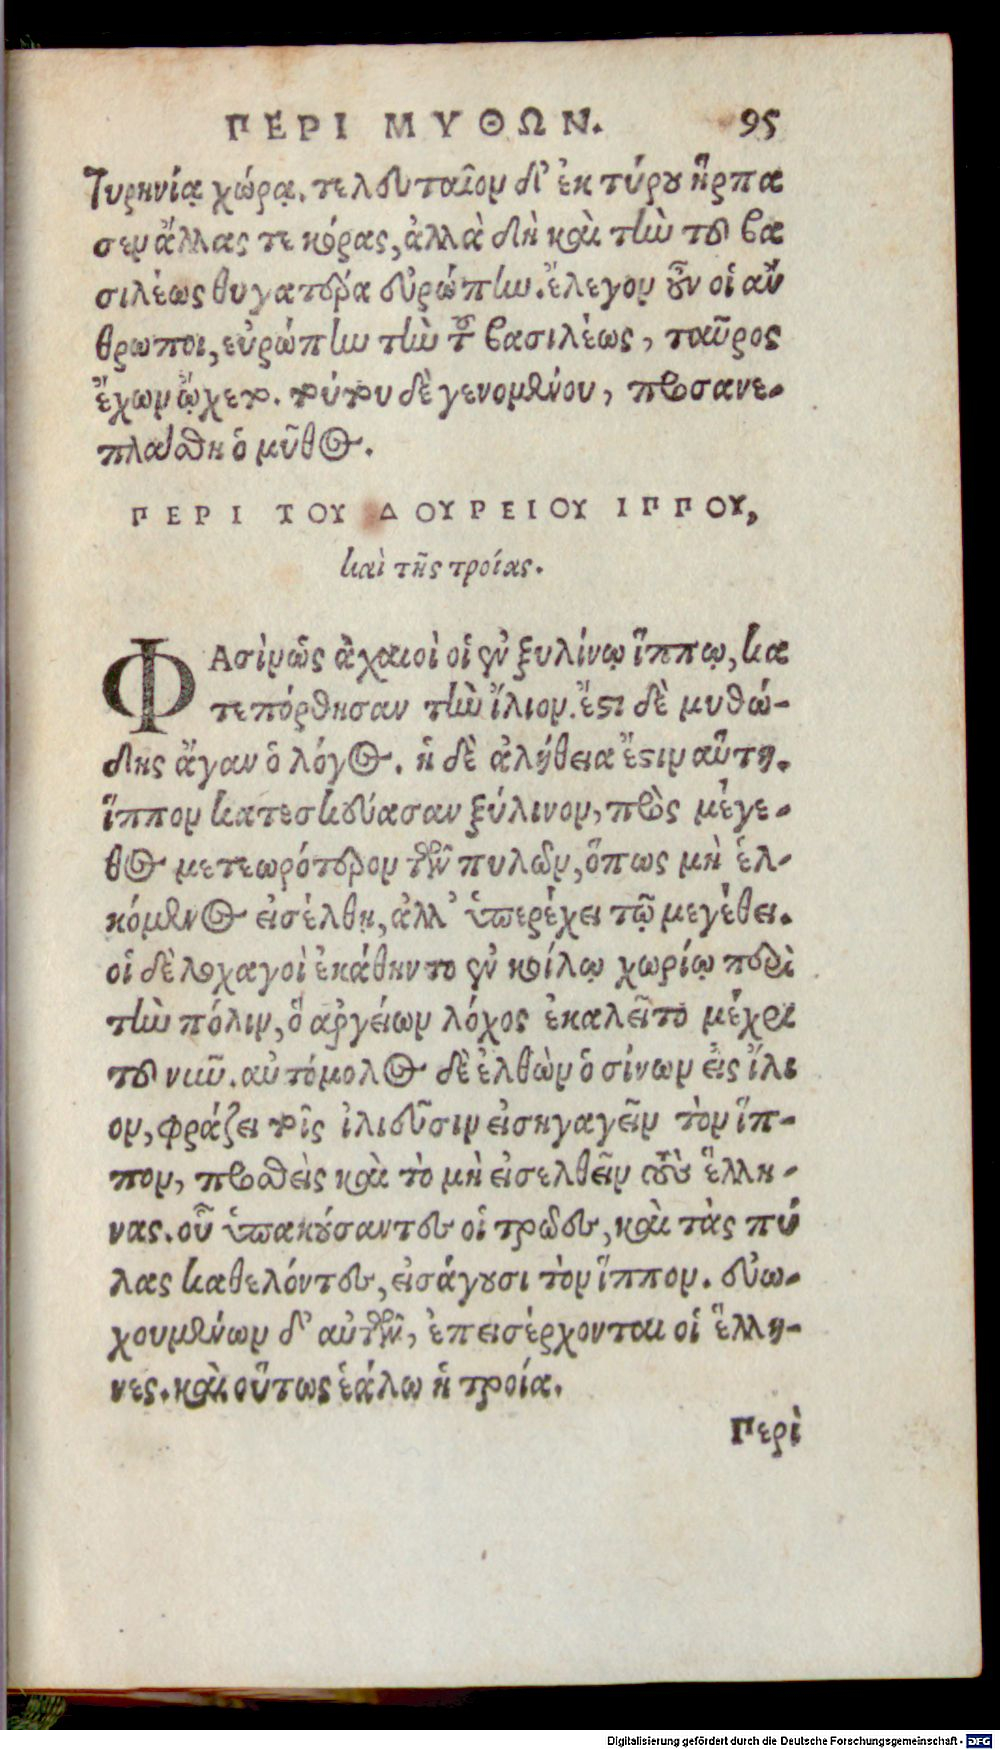 ΠΕΡΙ ΜΥΘΩΝ. 95
Τυρηνίᾳ χώρᾳ. τελευταῖον δ' ἐκ τύρου ἥρπα
σεν ἄλλας τε κόρας, ἀλλὰ δὴ καὶ τὴν τοῦ βα
σιλέως θυγατέρα εὐρώπην. ἔλεγον οὖν οἱ ἄν
θρωποι, εὐρώπην τὴν τοῦ βασιλέως, ταῦρος
ἔχων ᾤχετο. τούτου δὲ γενομένου, προσανε-
πλάσθη ὁ μῦθος.
ΠΕΡΙ ΤΟΥ ΔΟΥΡΕΙΟΥ ΙΠΠΟΥ,
καὶ τῆς τροίας.
ΦΑσὶν ὡς ἀχαιοὶ οἱ ἐν ξυλίνῳ ἵππῳ, κα
τεπόρθησαν τὴν ἴλιον. ἔστι δὲ μυθώ-
δης ἄγαν ὁ λόγος. ἡ δὲ ἀλήθεια ἔστιν αὕτη.
ἵππον κατεσκεύασαν ξύλινον, πρὸς μέγε-
θος μετεωρότερον τῶν πυλῶν, ὅπως μὴ ἑλ-
κόμενος εἰσέλθῃ, ἀλλ' ὑπερέχει τῷ μεγέθει.
οἱ δὲ λοχαγοὶ ἐκάθηντο ἐν κοίλῳ χωρίῳ περὶ
τὴν πόλιν, ὃ ἀργείων λόχος ἐκαλεῖτο μέχρι
τοῦ νῦν. αὐτόμολος δὲ ἐλθὼν ὁ σίνων εἰς ἴλι
ον, φράζει τοῖς ἰλιεῦσιν εἰσηγαγεῖν τὸν ἵπ-
πον, προσθεὶς καὶ τὸ μὴ εἰσελθεῖν τοὺς ἕλλη-
νας. οὗ ὑπακούσαντες οἱ τρῶες, καὶ τὰς πύ
λας καθελόντες, εἰσάγουσι τὸν ἵππον. εὐω-
χουμένων δ' αὐτῶν, ἐπεισέρχονται οἱ ἕλλη-
νες. καὶ οὕτως ἑάλω ἡ τροία.
Περὶ
Digitalisierung gefördert durch die Deutsche Forschungsgemeinschaft - DFG